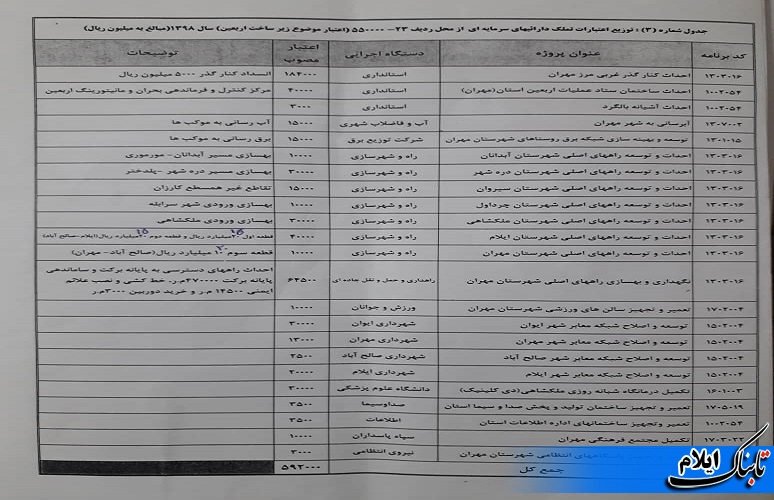 جدول شماره (۳) : توزیع اعتبارات تملک دارائیهای سرمایه ای از محل ردیف ۲۳- ۵۵۰۰۰۰ (اعتبار موضوع زیر ساخت اربعین) سال ۱۳۹۸(مبالغ به میلیون ریال)
کد برنامه عنوان پروژه دستگاه اجرایی اعتبار مصوب توضیحات
۱۳۰۳۰۱۶ احداث کنار گذر غربی مرز مهران استانداری ۱۸۴۰۰۰ انسداد کنار گذر ۵۰۰۰ میلیون ریال
۱۰۰۲۰۵۴ احداث ساختمان ستاد عملیات اربعین استان(مهران) استانداری ۴۰۰۰۰ مرکز کنترل و فرماندهی بحران و مانیتورینگ اربعین
۱۰۰۲۰۵۴ احداث آشیانه بالگرد استانداری ۳۰۰۰
۱۳۰۷۰۰۲ آبرسانی به شهر مهران آب و فاضلاب شهری ۱۵۰۰۰ آب رسانی به موکب ها
۱۳۰۱۰۱۵ توسعه و بهینه سازی شبکه برق روستاهای شهرستان مهران شرکت توزیع برق ۱۵۰۰۰ برق رسانی به موکب ها
۱۳۰۳۰۱۶ احداث و توسعه راههای اصلی شهرستان آبدانان راه و شهرسازی ۱۰۰۰۰ بهسازی مسیر آبدانان- مورموری
۱۳۰۳۰۱۶ احداث و توسعه راههای اصلی شهرستان دره شهر راه و شهرسازی ۳۰۰۰۰ بهسازی مسیر دره شهر -پلدختر
۱۳۰۳۰۱۶ احداث و توسعه راههای اصلی شهرستان سیروان راه و شهرسازی ۱۵۰۰۰ تقاطع غیر همسطع کارزان
۱۳۰۳۰۱۶ احداث و توسعه راههای اصلی شهرستان چرداول راه و شهرسازی ۱۰۰۰۰ بهسازی ورودی شهر سرابله
۱۳۰۳۰۱۶ احداث و توسعه راههای اصلی شهرستان ملکشاهی راه و شهرسازی ۳۰۰۰۰ بهسازی ورودی ملکشاهی
۱۳۰۳۰۱۶ احداث و توسعه راههای اصلی شهرستان ایلام راه و شهرسازی ۴۰۰۰۰ قطعه اول ۱۵ میلیارد ریال و قطعه دوم ۱۵ میلیارد ریال(ایلام-صالح آباد)
۱۳۰۳۰۱۶ احداث و توسعه راههای اصلی شهرستان مهران راه و شهرسازی ۱۰۰۰۰ قطعه سوم ۱۰ میلیارد ریال(صالح آباد- مهران)
۱۳۰۳۰۱۶ نگهداری و بهسازی راههای اصلی شهرستان مهران راهداری و حمل و نقل جاده ای ۶۴۵۰۰ احداث راههای دسترسی به پایانه برکت و ساماندهی
پایانه برکت ۴۷۰۰۰م.ر. خط کشی و نصب علائم
ایمنی ۱۴۵۰۰ م.ر و خرید دوربین ۳۰۰۰م.ر
۱۷۰۲۰۰۲ تعمیر و تجهیز سالن های ورزشی شهرستان مهران ورزش و جوانان ۱۰۰۰۰
۱۵۰۲۰۰۴ توسعه و اصلاح شبکه معابر شهر ایوان شهرداری ایوان ۳۰۰۰۰
۱۵۰۲۰۰۴ توسعه و اصلاح شبکه معابر شهر مهران شهرداری مهران ۱۳۰۰۰
۱۵۰۲۰۰۴ توسعه و اصلاح شبکه معابر شهر صالح آباد شهرداری صالح آباد ۲۵۰۰
۱۵۰۲۰۰۴ توسعه و اصلاح شبکه معابر شهر ایلام شهرداری ایلام ۲۰۰۰۰
۱۶۰۱۰۰۳ تکمیل درمانگاه شبانه روزی ملکشاهی(دی کلینیک) دانشگاه علوم پزشکی ۳۰۰۰۰
۱۷۰۵۰۱۹ تعمیر و تجهیز ساختمان تولید و پخش صدا و سیما استان صداوسیما ۳۵۰۰
۱۰۰۲۰۵۴ تعمیر وتجهیز ساختمانهای اداره اطلاعات استان اطلاعات ۳۵۰۰
۱۷۰۳۰۲۲ تکمیل مجتمع فرهنگی مهران سپاه پاسداران ۱۰۰۰۰
انتظامی شهرستان مهران نیروی انتظامی ۳۰۰۰
جمع کل ۵۹۲۰۰۰
تابناک ایلام